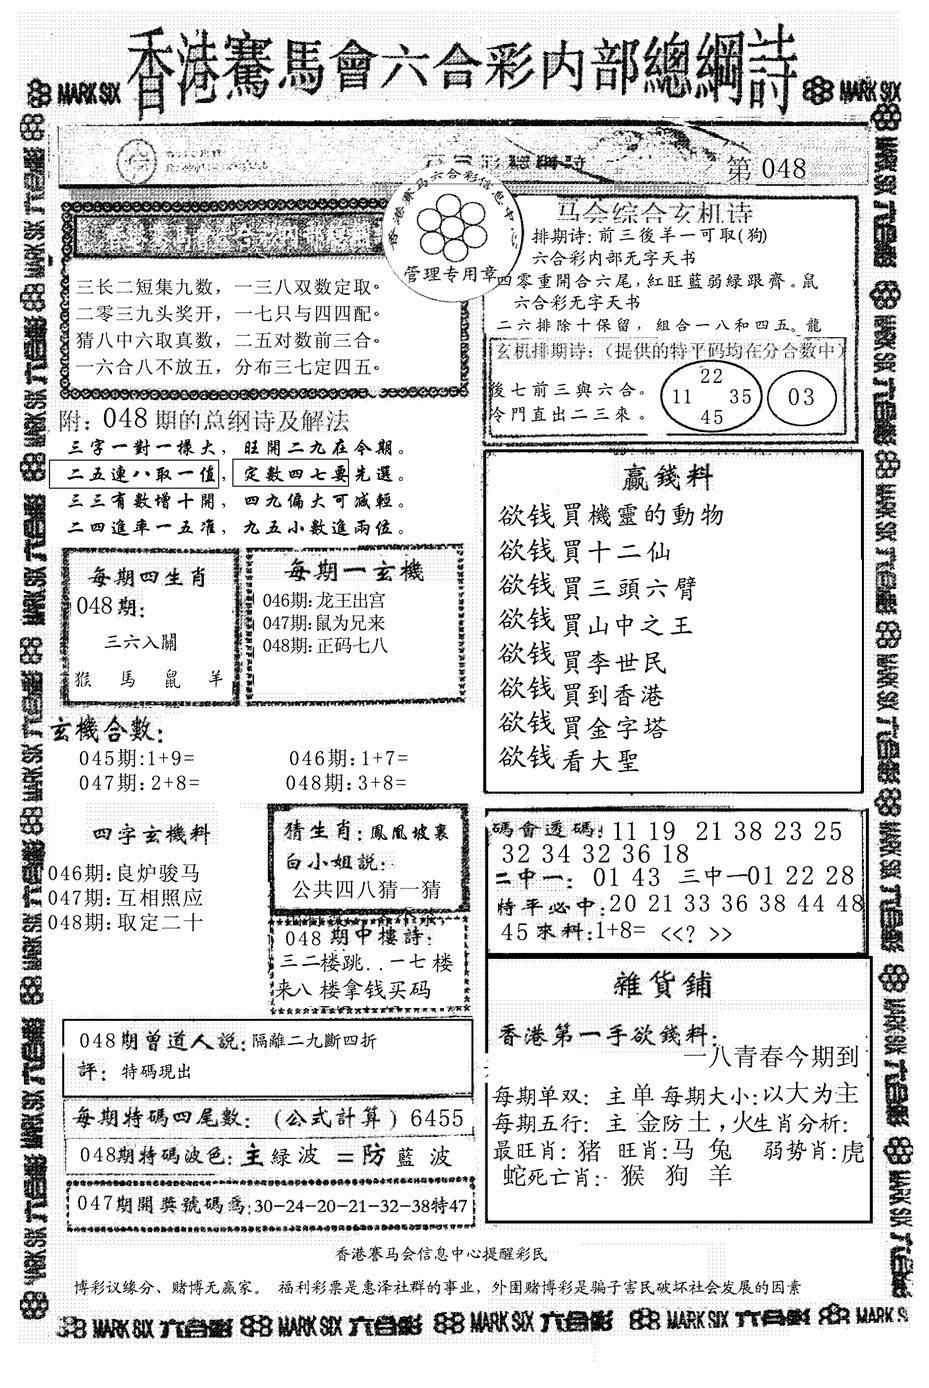 香港賽馬會六合彩内部總綱詩
MARK SIX
MARK SIX
第 048
香港赛马六合彩信息中心
管理专用章
三长二短集九数，一三八双数定取。
二零三九头奖开，一七只与四四配。
猜八中六取真数，二五对数前三合。
一六合八不放五，分布三七定四五。
马会综合玄机诗
排期诗: 前三後羊一可取(狗)
六合彩内部无字天书
四零重開合六尾，紅旺藍弱緑跟齊。鼠
六合彩无字天书
二六排除十保留，組合一八和四五。龍
玄机排期诗:（提供的特平码均在分合数中）
後七前三與六合。
冷門直出二三來。
22
11 35
45
03
附: 048 期的总纲诗及解法
三字一對一樣大，旺開二九在今期。
二五連八取一值，定數四七要先選。
三三有數增十開，四九偏大可減輕。
二四進率一五准，九五小數進兩位。
每期四生肖
048期:
三六入關
猴 馬 鼠 羊
每期一玄機
046期: 龙王出宫
047期: 鼠为兄来
048期: 正码七八
赢錢料
欲钱買機靈的動物
欲钱買十二仙
欲钱買三頭六臂
欲钱買山中之王
欲钱買李世民
欲钱買到香港
欲钱買金字塔
欲钱看大聖
玄機合數:
045期:1+9= 046期:1+7=
047期:2+8= 048期:3+8=
四字玄機料
046期: 良炉骏马
047期: 互相照应
048期: 取定二十
猜生肖: 鳳凰坡裏
白小姐説:
公共四八猜一猜
048 期中樓詩:
三二楼跳..一七 楼
来八 楼拿钱买码
碼會透碼: 11 19 21 38 23 25
32 34 32 36 18
二中一: 01 43 三中一01 22 28
特平必中:20 21 33 36 38 44 48
45 來料:1+8= <<? >>
雜貨鋪
香港第一手欲錢料:
一八青春今期到
每期单双: 主单 每期大小: 以大为主
每期五行: 主 金防土，火生肖分析:
最旺肖: 猪 旺肖: 马 兔 弱势肖: 虎
蛇死亡肖: 猴 狗 羊
048期曾道人説: 隔離二九斷四折
評: 特碼現出
每期特碼四尾數: (公式計算) 6455
048期特碼波色: 主緑波 =防藍波
047期開獎號碼爲: 30-24-20-21-32-38特47
香港赛马会信息中心提醒彩民
博彩议缘分、赌博无赢家。 福利彩票是惠泽社群的事业，外围赌博彩是骗子害民破坏社会发展的因素
MARK SIX 六合彩 MARK SIX 六合彩 MARK SIX 六合彩 MARK SIX 六合彩 MARK SIX